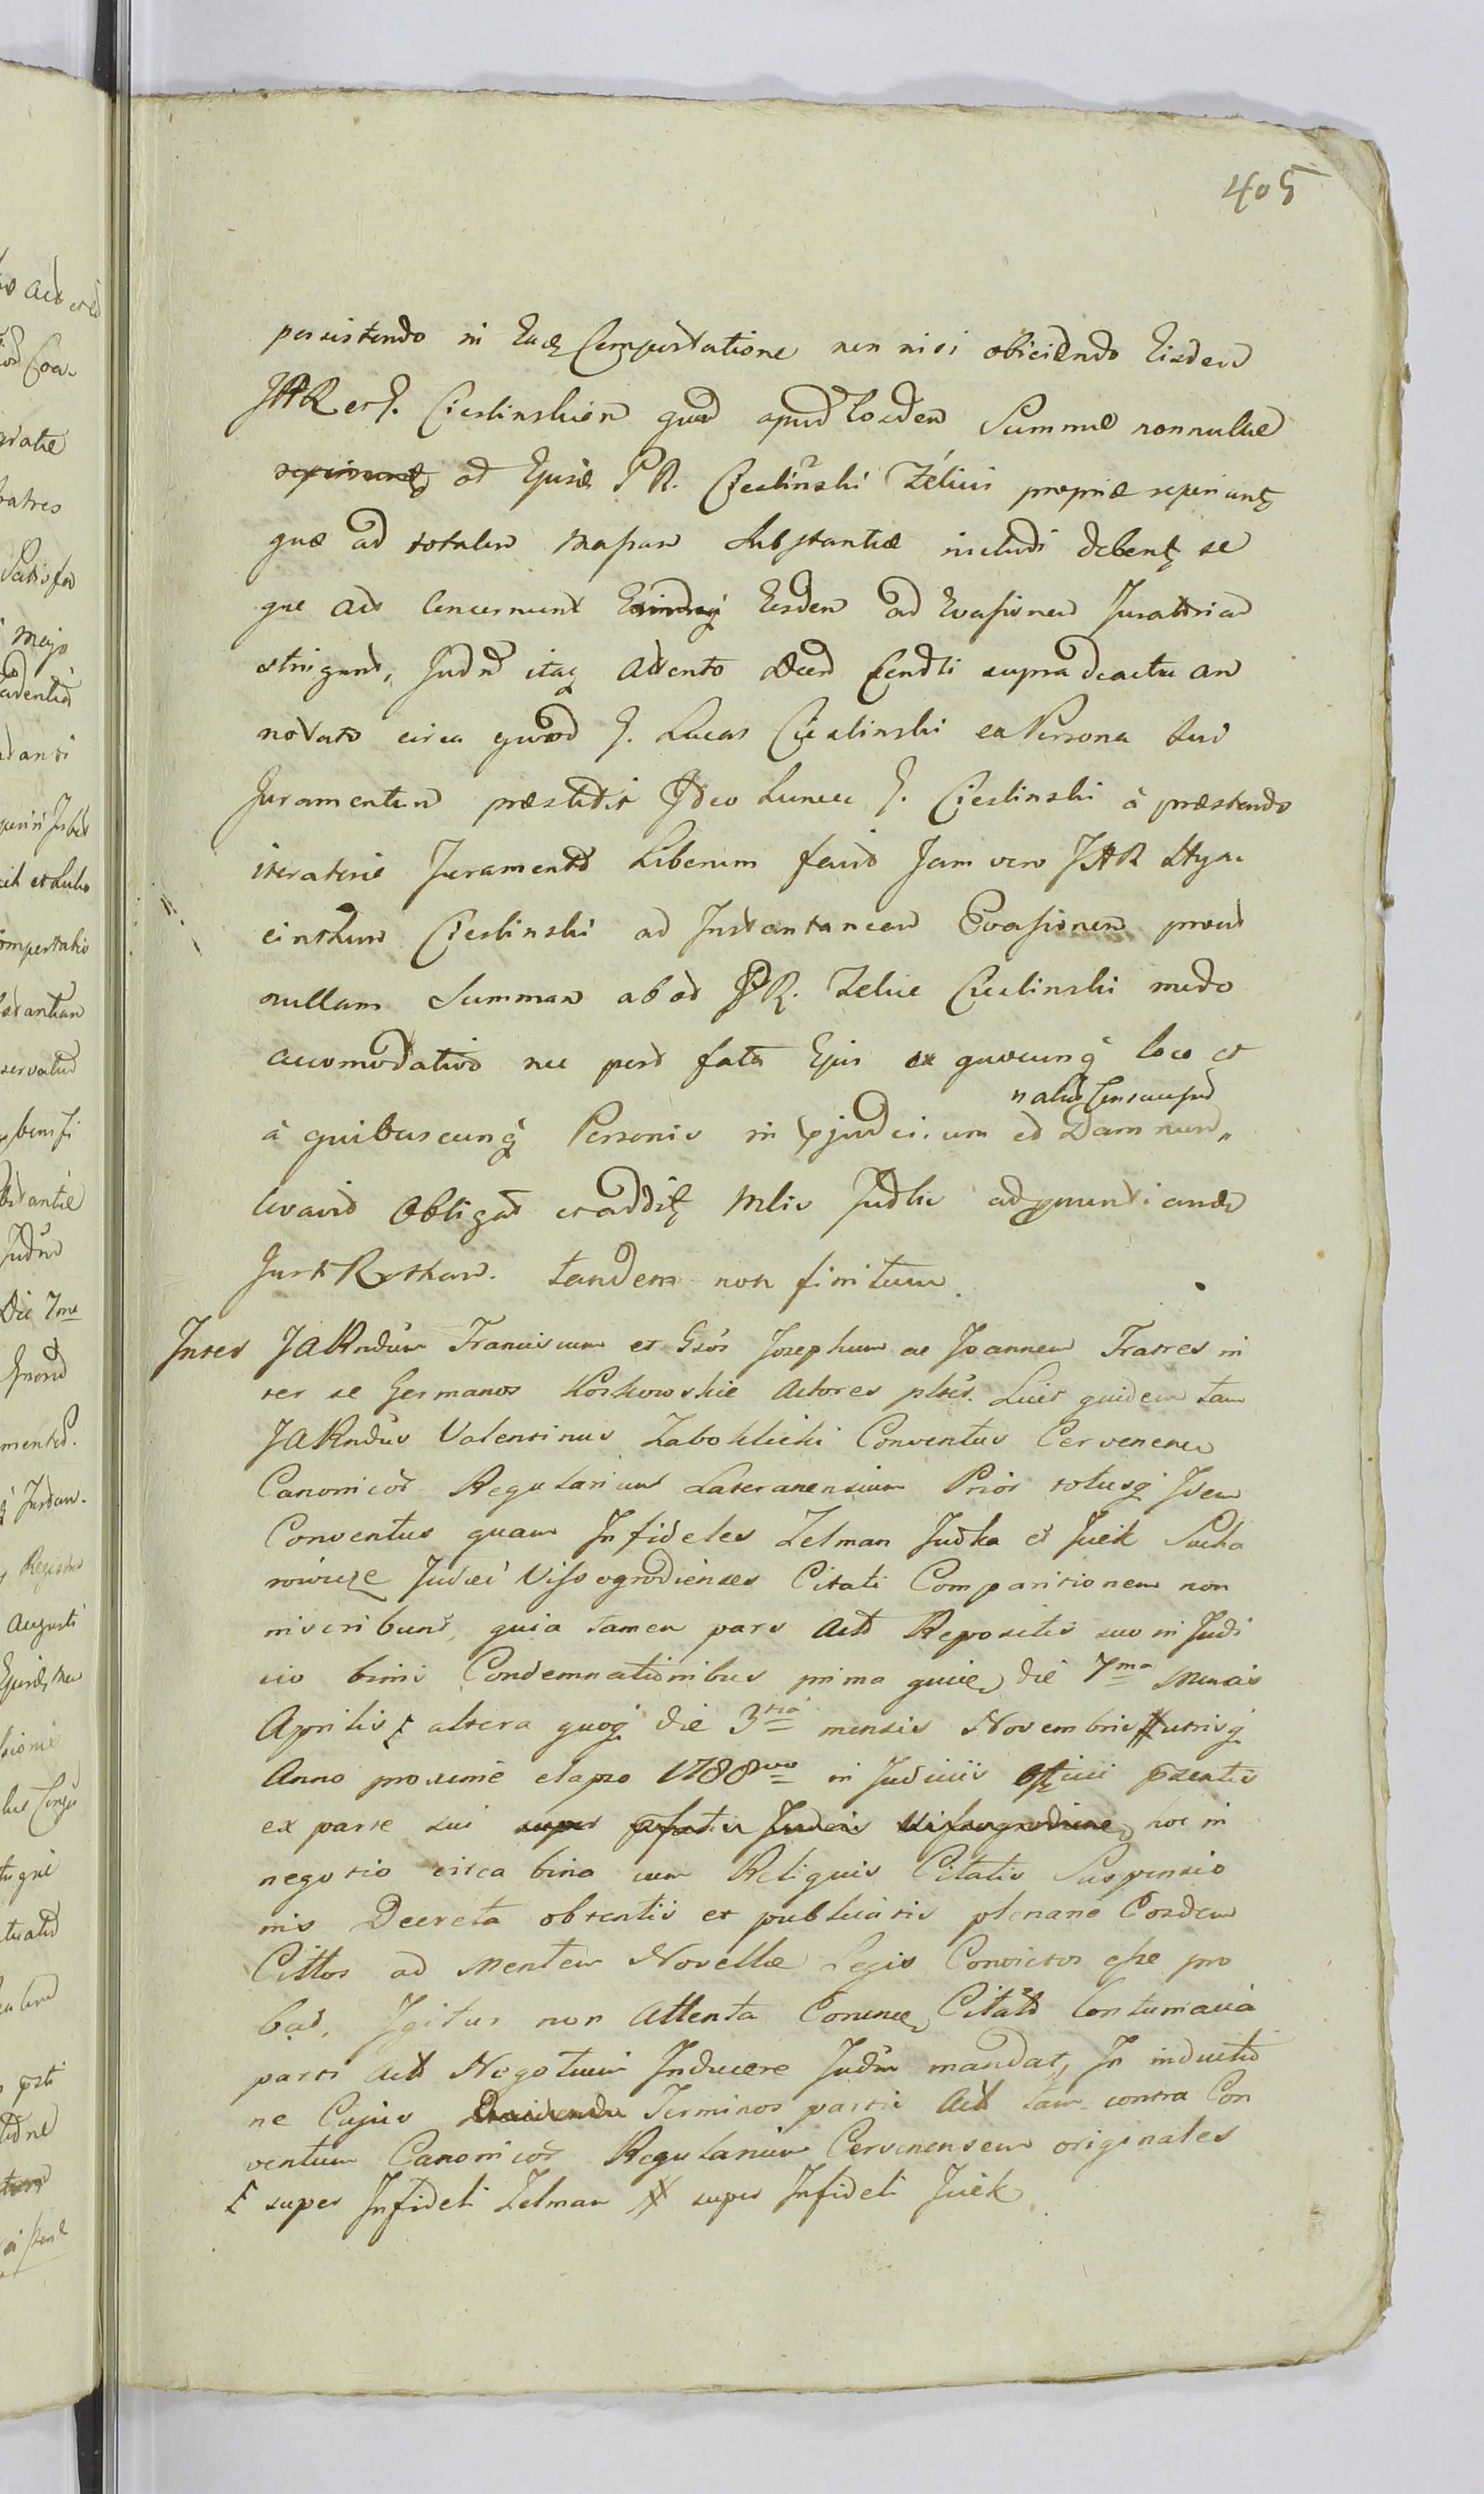 405
persistendo in Ead Comportatione non nisi obiciendo Eisdem
JAR et G. Cieslinskien quod apud Eosdem Summæ nonnullæ
ad Ejusd PR. Cieslinski Zelivi propriæ reperiunt
quæ ad totalem massam substantiæ includi debent se
que Act Concernunt Eosdem ad Evasionem Juratoriam
stringunt, Judm itaq Attento Decr Condli supra de actu an
notato circa quod G. Lucas Cieslinski ex Persona sua
Juramentum præstitit Ideo Eumdem G. Cieslinski à præstando
iteratorie Juramento Liberum facit Jam vero JAR Hya
cinthum Cieslinski ad Instantaneam Evasionem prout
nullam Summam ab od PR. Zelive Cieslinski modo
accomodativo nec post fata Ejus ex quocunq loco et
à quibuscunq Personis in pjudicium et Damnum
levavit Obligat et addit Mlis Judlis ad pnuntiand
Jurt Rotham. tandem non finitum.
Inter JARndum Franciscum et Gsos Josephum ac Joannem Fratres in
ter se Germanos Koskowskie Actores pltes. Licet quidem tam
JARndus Valentinus Zaboklicki Conventus Cervenens
Canonicor Regularium Lateranensium Prior totusq Idem
Conventus quam Infideles Zelman Judka et Jcek Sucha
rowicze Judæi Vissogrodienses Citati Comparitionem non
inscribunt, quia tamen pars Act Repositis suo in Judi
cio binis Condemnationibus prima quide die 7ma Mensis
Aprilis ƭ altera quoq die 3tia mensis Novembris # utrisq
Anno proxime elapso 1788vo in Judiciis Offcii pzentis
ex parte sui super Judæis Vissogrodiens hoc in
negotio circa bina cum Reliquis Citatis Suspensio
nis Decreta obtentis et publicatis plenarie Eosdem
Cittos ad Mentem Novellæ Legis Convictos esse pro
bat, Igitur non Attenta Eorund Citat Contumacia
parti Act Negotium Inducere Judm mandat, In inductio
ne Cujus Terminos partis Act tam contra Con
ventum Canonicor Regularium Cervenensem originales
ƭ super Infideli Zelman # super Infideli Jcek